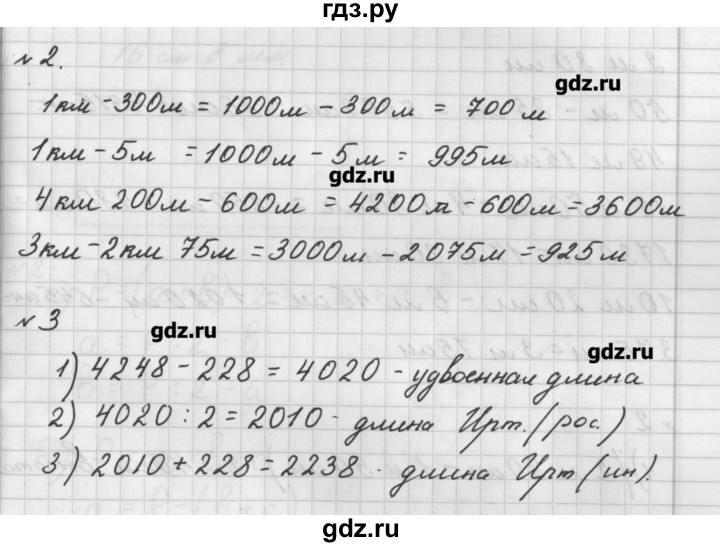 гдз.ру
№ 2.
gdz.ru
1км - 300м = 1000м - 300м = 700м
1км - 5м = 1000м - 5м = 995м
gdz.ru
4км 200м - 600м = 4200м - 600м = 3600м
3км - 2км 75м = 3000м - 2075м = 925м
№ 3
gdz.ru
gdz.ru
1) 4248 - 228 = 4020 - удвоенная длина
2) 4020 : 2 = 2010 - длина Ирт. (рос.)
3) 2010 + 228 = 2238 - длина Ирт (ин).
gdz.ru